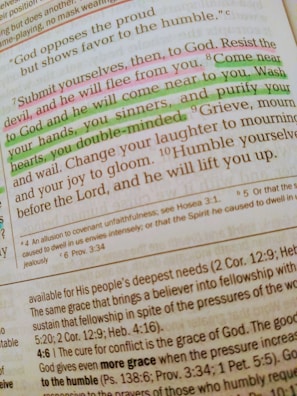 their position
ing but does another.
me-playing, no mask wearing
"God opposes the proud
but shows favor to the humble." c
7 Submit yourselves, then, to God. Resist the
devil, and he will flee from you. 8 Come near
to God and he will come near to you. Wash
your hands, you sinners, and purify your
hearts, you double-minded. 9 Grieve, mourn
and wail. Change your laughter to mourning
and your joy to gloom. 10 Humble yourselve
before the Lord, and he will lift you up.
a 4 An allusion to covenant unfaithfulness; see Hosea 3:1. b 5 Or that the
caused to dwell in us envies intensely; or that the Spirit he caused to dwell in
jealously c 6 Prov. 3:34
available for His people's deepest needs (2 Cor. 12:9; Heb.
The same grace that brings a believer into fellowship with
sustain that fellowship in spite of the pressures of the wo
5:20; 2 Cor. 12:9; Heb. 4:16).
4:6 ) The cure for conflict is the grace of God. The good
God gives even more grace when the pressure increas
to the humble (Ps. 138:6; Prov. 3:34; 1 Pet. 5:5). Go
responsive to the prayers of those who humbly reque